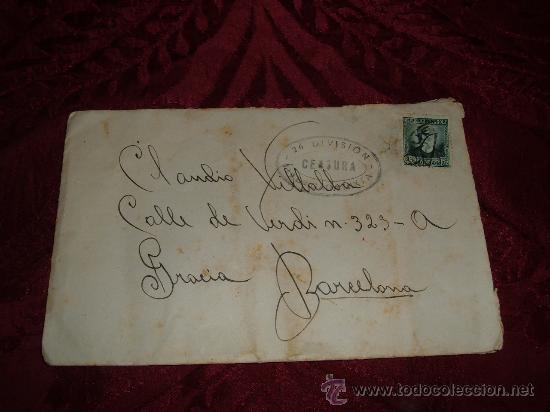 26 DIVISION
CENSURA
Claudio Villalba
Calle de Verdi n. 323-A
Gracia Barcelona
todocoleccion
www.todocoleccion.net